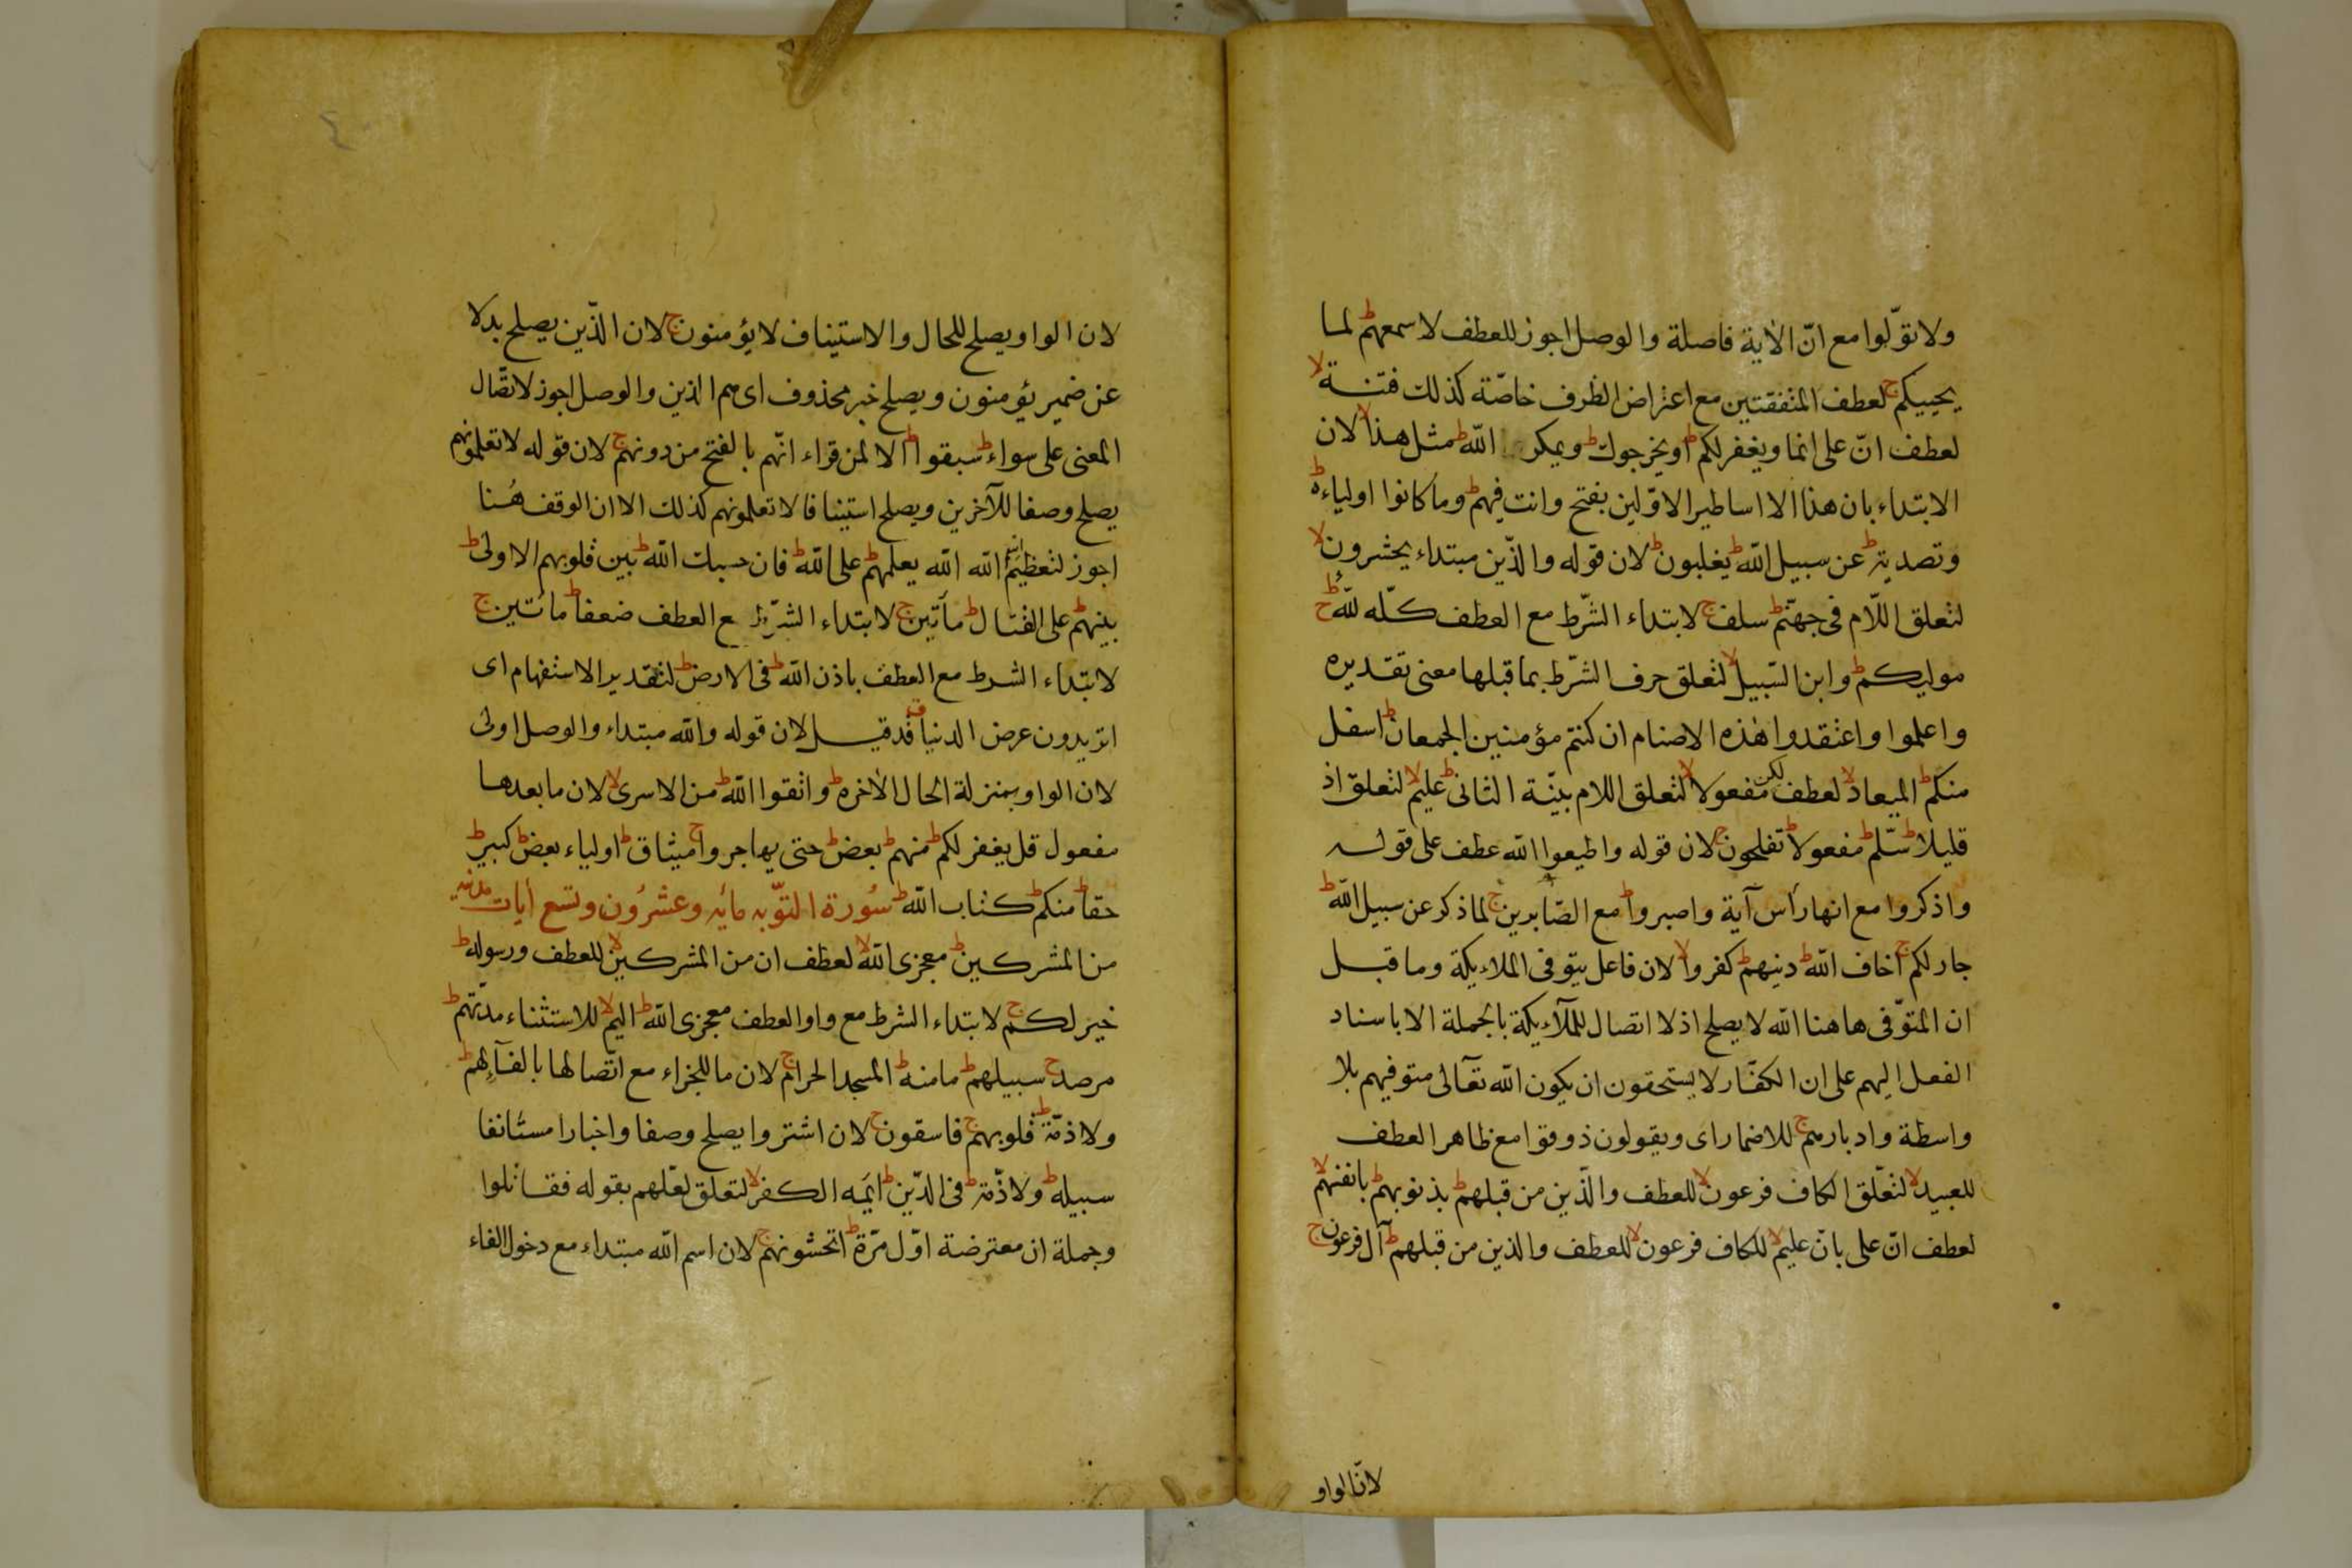 ولا تولّوا مع انّ الآية فاصلة والوصل اجوز للعطف لاسمعهم ط لما
يحييكم ج لعطف المتفقتين مع اعتراض الظرف خاصّة كذلك فتنة لا
لعطف انّ على انما ويغفر لكم ط او يخرجوك ط ويمكر الله ط مثل هذا لا لان
الابتداء بان هذا الا اساطير الاوّلين بفتح وانت فيهم ط وما كانوا اولياءه ط
وتصدية ط عن سبيل الله ط يغلبون ط لان قوله والّذين مبتداء يحشرون لا
لتعلق اللّام فى جهنّم ط سلف ج لابتداء الشّرط مع العطف كلّه لله ج
موليكم ط وابن السّبيل لا لتعلق حرف الشّرط بما قبلها معنى تقديره
واعلموا واعتقدوا هٰذه الاصنام ان كنتم مؤمنين الجمعان ط اسفل
منكم ط الميعاد لا لعطف لكن مفعولا لا لتعلق اللام بيّنة الثانى ط عليم لا لتعلق اذ
قليلا ط سلّم ط مفعولا ط تفلحون ج لان قوله واطيعوا الله عطف على قوله
واذكروا مع انها رأس آية واصبروا ط مع الصّابرين ج لما ذكر عن سبيل الله ط
جار لكم ج اخاف الله ط دينهم ط كفروا لا لان فاعل يتوفى الملايكة وما قبل
ان المتوّفى هاهنا الله لا يصلح اذ لا اتصال للملآيكة بالجملة الا باسناد
الفعل اليهم على ان الكفّار لا يستحقون ان يكون الله تعالى متوفيهم بلا
واسطة وادبارهم ج للاضمار اى ويقولون ذوقوا مع ظاهر العطف
للعبيد لا لتعّلق الكاف فرعون لا للعطف والّذين من قبلهم ط بذنوبهم ط بانفسهم لا
لعطف انّ على بانّ عليم لا للكاف فرعون لا للعطف والذين من قبلهم ط آل فرعون ج
لانّ الواو
لان الواو يصلح للحال والاستيناف لا يؤمنون ج لان الّذين يصلح بدلا
عن ضمير يؤمنون ويصلح خبر محذوف اى هم الذين والوصل اجوز لاتصّال
المعنى على سواء ط سبقوا ط الا لمن قراء انّهم بالفتح من دونهم ج لان قوله لا تعلمونهم
يصلح وصفا للآخرين ويصلح استينافا لا تعلمونهم كذلك الا ان الوقف هُنا
اجوز لتعظيم الله الله يعلمهم ط على الله ط فان حسبك الله ط بين قلوبهم الاولى ط
بينهم ط على القتال ط مأتين ج لابتداء الشّرط مع العطف ضعفا ط مائتين ج
لابتداء الشرط مع العطف باذن الله ط فى الارض ط لتقدير الاستفهام اى
اتريدون عرض الدنيا ق قد قيل لان قوله والله مبتداء والوصل اولى
لان الواو بمنزلة الحال الاخره ط واتقوا الله ط من الاسرى لا لان ما بعدها
مفعول قل يغفر لكم ط منهم ط بعض ط حتى يهاجروا ج ميثاق ط اولياء بعض ط كبير ط
حقا ط منكم ط كتاب الله ط سُورة التّوبه مائه وعشرُون وتسع أيات مدنيه
من المشركين ط معجزى الله لا لعطف ان من المشركين لا للعطف ورسوله ط
خير لكم ج لابتداء الشرط مع واو العطف معجزى الله ط اليم لا للاستثناء مدّتهم ط
مرصد ج سبيلهم ط مامنه ط المسجد الحرام ج لان ما للجزاء مع اتّصالها بالفآءِ لهم ط
ولا ذمّة ط قلوبهم ج فاسقون ج لان اشتروا يصلح وصفا واخبارا مستانفا
سبيله ط ولا ذّمة ط فى الدّين ط ايّمه الكفر لا لتعلق لعّلهم بقوله فقاتلوا
وجملة ان معترضة اوّل مرّة ط اتخشونهم ج لان اسم الله مبتداء مع دخول الفاء